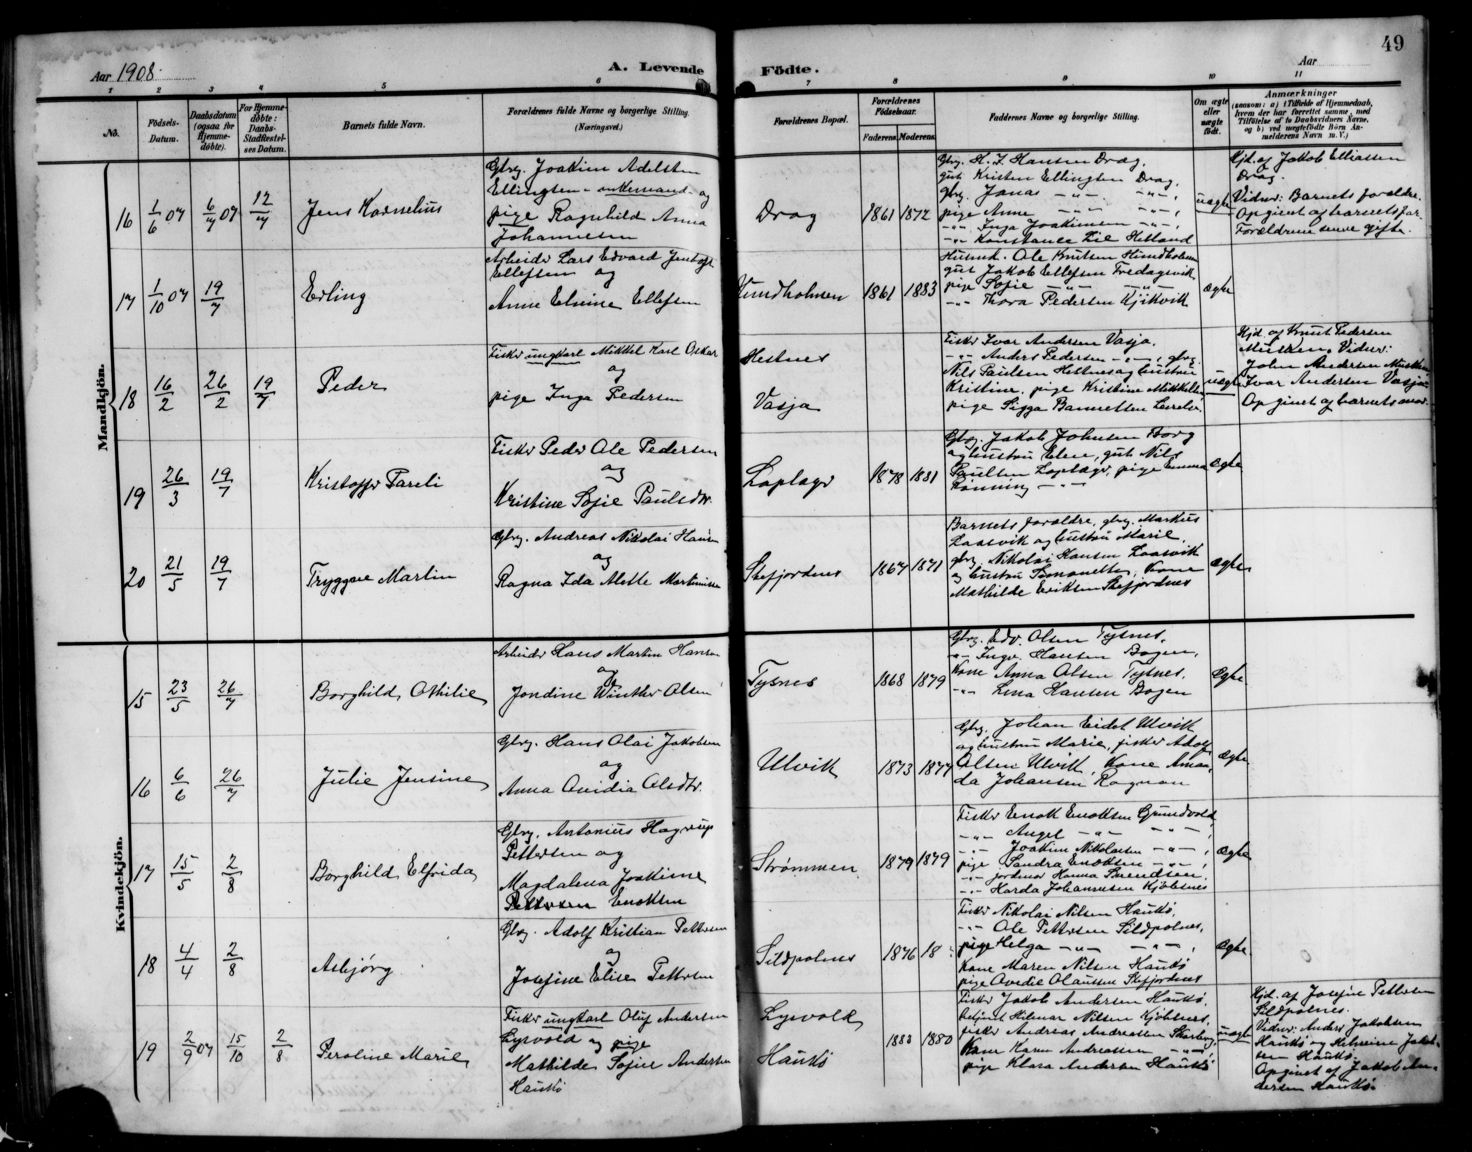 49
Aar 1908.
A. Levende Födte.
Aar
1 2 3 4 5 6 7 8 9 10 11
No.
Födsels-Datum.
Daabsdatum (ogsaa for Hjemme-döbte).
For Hjemme-döbte: Daabs-Stadfæstelses Datum.
Barnets fulde Navn.
Forældrenes fulde Navne og borgerlige Stilling. (Næringsvei.)
Forældrenes Bopæl.
Forældrenes Födselsaar.
Faderens. Moderens.
Faddernes Navne og borgerlige Stilling.
Om ægte eller uægte födt.
Anmærkninger
(saasom: a) i Tilfælde af Hjemmedaab, hvem der har forrettet samme, med Tilföielse af to Daabsvidners Navne, og b) ved uægtefödte Börn Anmelderens Navn m. V.)
Mandkjön.
16 1/6 07 6/7 07 12/7
Jens Kornelius
Gbrg. Joakim Adelsten
Ellingsen - enkemand - og
pige Ragnhild Anna
Johannesen
Drag
1861 1872
Gbrg. H. J. Hansen Drag,
gut Kristen Ellingsen Drag,
gbrg. Jonas -"- -"-,
pige Anne -"- -"-,
-"- Inga Joakimsen -"-,
-"- Konstance Lie Helland
uægte
Hjd. af Jakob Elliassen
Drag.
Vidner: Barnets forældre.
Opgivet af barnets far
Forældrene senere gifte.
17 1/10 07 19/7
Erling
Arbeider Lars Edvard Jentoft
Ellefsen og
Anne Elnine Ellefsen
Hundholmen
1861 1883
Husmd. Ole Knutsen Hundholmen
gut Jakob Ellefsen Fredagsvik
pige Sofie -"- -"-
-"- Thora Pedersen Kjikvik
ægte
18 16/2 26/2 19/7
Peder
Fisker ungkarl Mikkel Karl Oskar
og
pige Inga Pedersen
Hestnes
Vasja
Fisker Ivar Andersen Vasja,
-"- Anders Pedersen -"-, gbrg.
Nils Paulsen Hestnes og hustru
Kristine, pige Kristine Mikkelsen
pige Sigga
uægte
Hjd. af Knut Pedersen
Musken, Vidner:
John Andersen Musken
Ivar Andersen Vasja
Opgivet af barnets mor.
19 26/3 19/7
Kristoffer Pareli
Fisker Peder Ole Pedersen
og
Kristine Sofie Paulsdtr.
Loplagr
1878 1881
Gbrg. Jakob Johnsen Borg
og hustru Elen, gut Nils
Paulsen Loplagr, pige Emma
Rønning -"-
Ægte
20 21/5 19/7
Tryggve Martin
Gbrg. Andreas Nikolai Hansen
og
Ragna Ida Alette Martinussen
Stefjordnes
1867 1871
Barnets forældre, gbrg. Markus
Laasvik og hustru Marie,
gbrg. Nikolai Hansen Laasvik
og hustru, Kone
Mathilde Eriksen Stefjordnes
Ægte
Kvindekjön.
15 23/5 26/7
Borghild Othilie
Arbeider Hans Martin Hansen
og
Jondine Winther Olsen
Tysnes
1868 1879
Gbrg. Edv. Olsen Tysnes,
-"- Ingv. Hansen Bogen,
Kone Anna Olsen Tysnes,
-"- Lina Hansen Bogen
Ægte
16 6/6 26/7
Julie Jensine
Gbrg. Hans Olai Jakobsen
og
Anna Ovidia Olsdtr.
Ulvik
1873 1877
Gbrg. Johan Eidet Ulvik
og hustru Marie, fisker Adolf
Olsen Ulvik, Kone Aman-
da Johansen Rognan
Ægte
17 15/5 2/8
Borghild Elfrida
Gbrg. Antonius Hagerup
Pettersen og
Magdalena Joakime
Pettersen Enoksen
Strømmen
1879 1879
Fisker Enok Enoksen Grundvold,
-"- Angel -"- -"-,
-"- Joakim Nikolaisen -"-,
pige Sandra Enoksen -"-,
-"- jordmor Hanna Svendsen,
-"- Harda Johannesen Kjöbsnes
Ægte
18 4/4 2/8
Asbjörg
Gbrg. Adolf Kristian Pettersen
og
Josefine Elise Pettersen
Sildpolnes
1876 18
Fisker Nikolai Nilsen Haukö,
-"- Ole Pettersen Sildpolnes,
pige Helga -"- -"-,
Kone Maren Nilsen Haukö
pige Ovedie Olaussen Stefjordnes
Ægte
19 2/9 07 15/10 2/8
Peroline Marie
Fisker ungkarl Oluf Andersen
Lysvold og pige
Mathilde Sofie Andersen
Haukö
Lysvold
Haukö
1883 1880
Fisker Jakob Andersen Haukö,
Hilmar Nilsen Kjöbsnes,
fisker Andreas Andreassen Skarberg
Kone Karen Andreassen -"-
pige Klara Andersen Haukö
uægte
Hjd. af Josefine Pettersen
Sildpolnes.
Vidner: Anders Jakobsen
Haukö og Jakob-
sen Haukö.
Opgivet af Jakob An-
dersen Haukö.